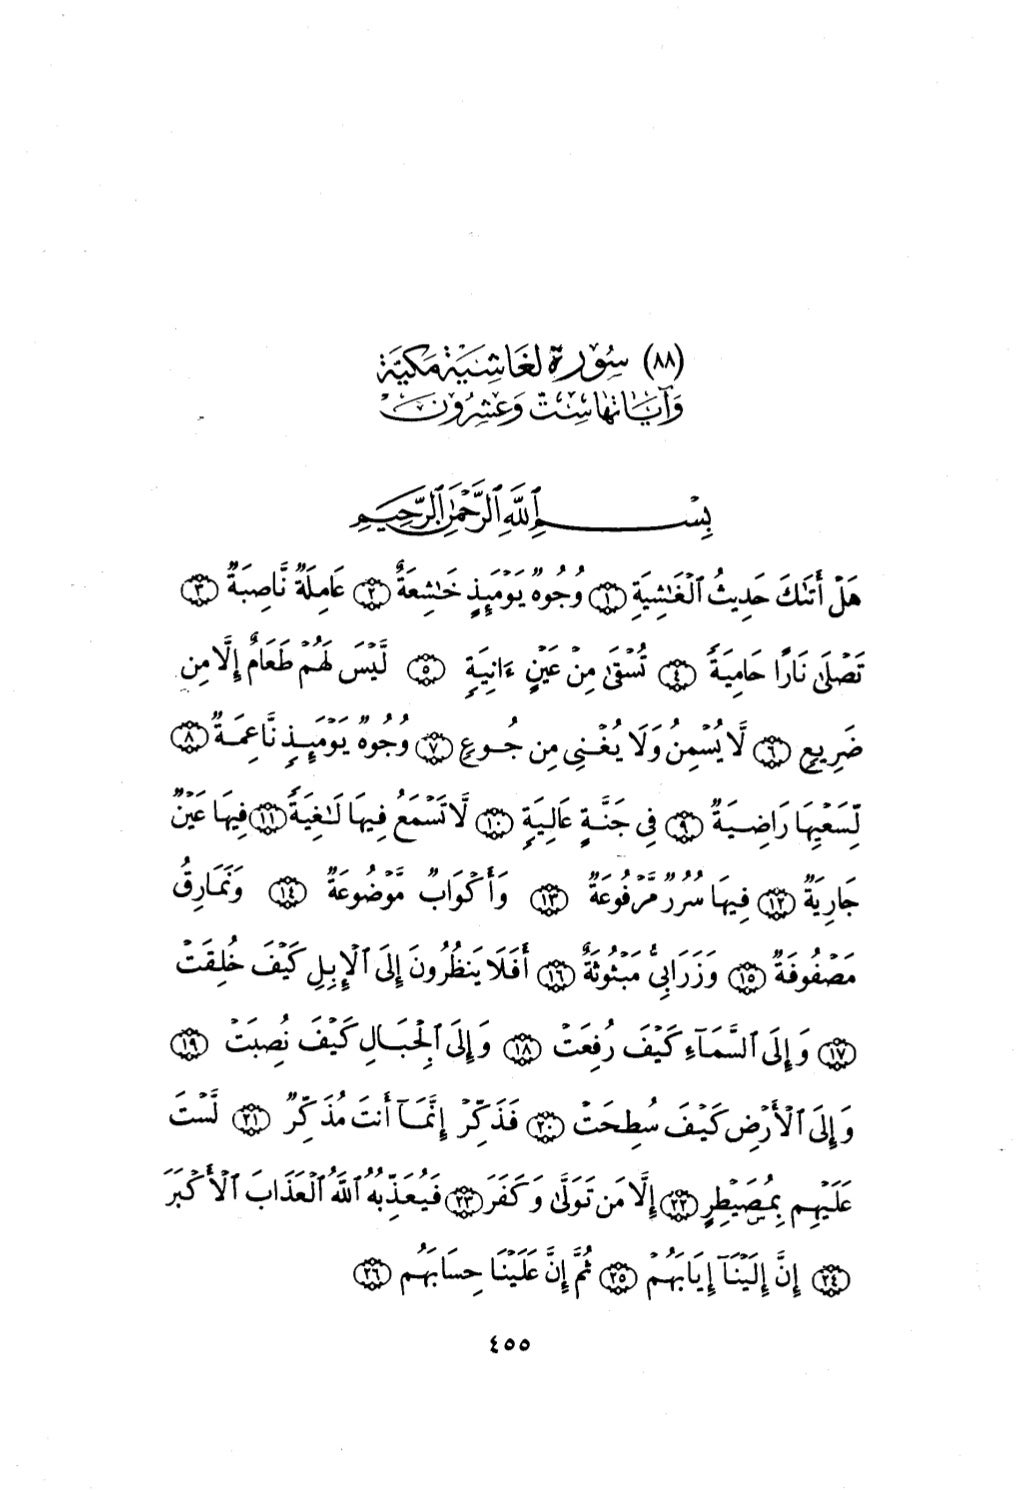 (٨٨) سُورَة الغَاشِيَة مَكيَّة
وَآيَاتهَا سِتّ وَعشِرُون
بِسْمِ ٱللَّهِ ٱلرَّحْمَٰنِ ٱلرَّحِيمِ
هَلْ أَتَىٰكَ حَدِيثُ ٱلْغَٰشِيَةِ ١ وُجُوهٌ يَوْمَئِذٍ خَٰشِعَةٌ ٢ عَامِلَةٌ نَّاصِبَةٌ ٣
تَصْلَىٰ نَارًا حَامِيَةً ٤ تُسْقَىٰ مِنْ عَيْنٍ ءَانِيَةٍ ٥ لَّيْسَ لَهُمْ طَعَامٌ إِلَّا مِن
ضَرِيعٍ ٦ لَّا يُسْمِنُ وَلَا يُغْنِى مِن جُوعٍ ٧ وُجُوهٌ يَوْمَئِذٍ نَّاعِمَةٌ ٨
لِّسَعْيِهَا رَاضِيَةٌ ٩ فِى جَنَّةٍ عَالِيَةٍ ١٠ لَّا تَسْمَعُ فِيهَا لَٰغِيَةً ١١ فِيهَا عَيْنٌ
جَارِيَةٌ ١٢ فِيهَا سُرُرٌ مَّرْفُوعَةٌ ١٣ وَأَكْوَابٌ مَّوْضُوعَةٌ ١٤ وَنَمَارِقُ
مَصْفُوفَةٌ ١٥ وَزَرَابِىُّ مَبْثُوثَةٌ ١٦ أَفَلَا يَنظُرُونَ إِلَى ٱلْإِبِلِ كَيْفَ خُلِقَتْ
١٧ وَإِلَى ٱلسَّمَآءِ كَيْفَ رُفِعَتْ ١٨ وَإِلَى ٱلْجِبَالِ كَيْفَ نُصِبَتْ ١٩
وَإِلَى ٱلْأَرْضِ كَيْفَ سُطِحَتْ ٢٠ فَذَكِّرْ إِنَّمَآ أَنتَ مُذَكِّرٌ ٢١ لَّسْتَ
عَلَيْهِم بِمُصَيْطِرٍ ٢٢ إِلَّا مَن تَوَلَّىٰ وَكَفَرَ ٢٣ فَيُعَذِّبُهُ ٱللَّهُ ٱلْعَذَابَ ٱلْأَكْبَرَ
٢٤ إِنَّ إِلَيْنَآ إِيَابَهُمْ ٢٥ ثُمَّ إِنَّ عَلَيْنَا حِسَابَهُم ٢٦
٤٥٥